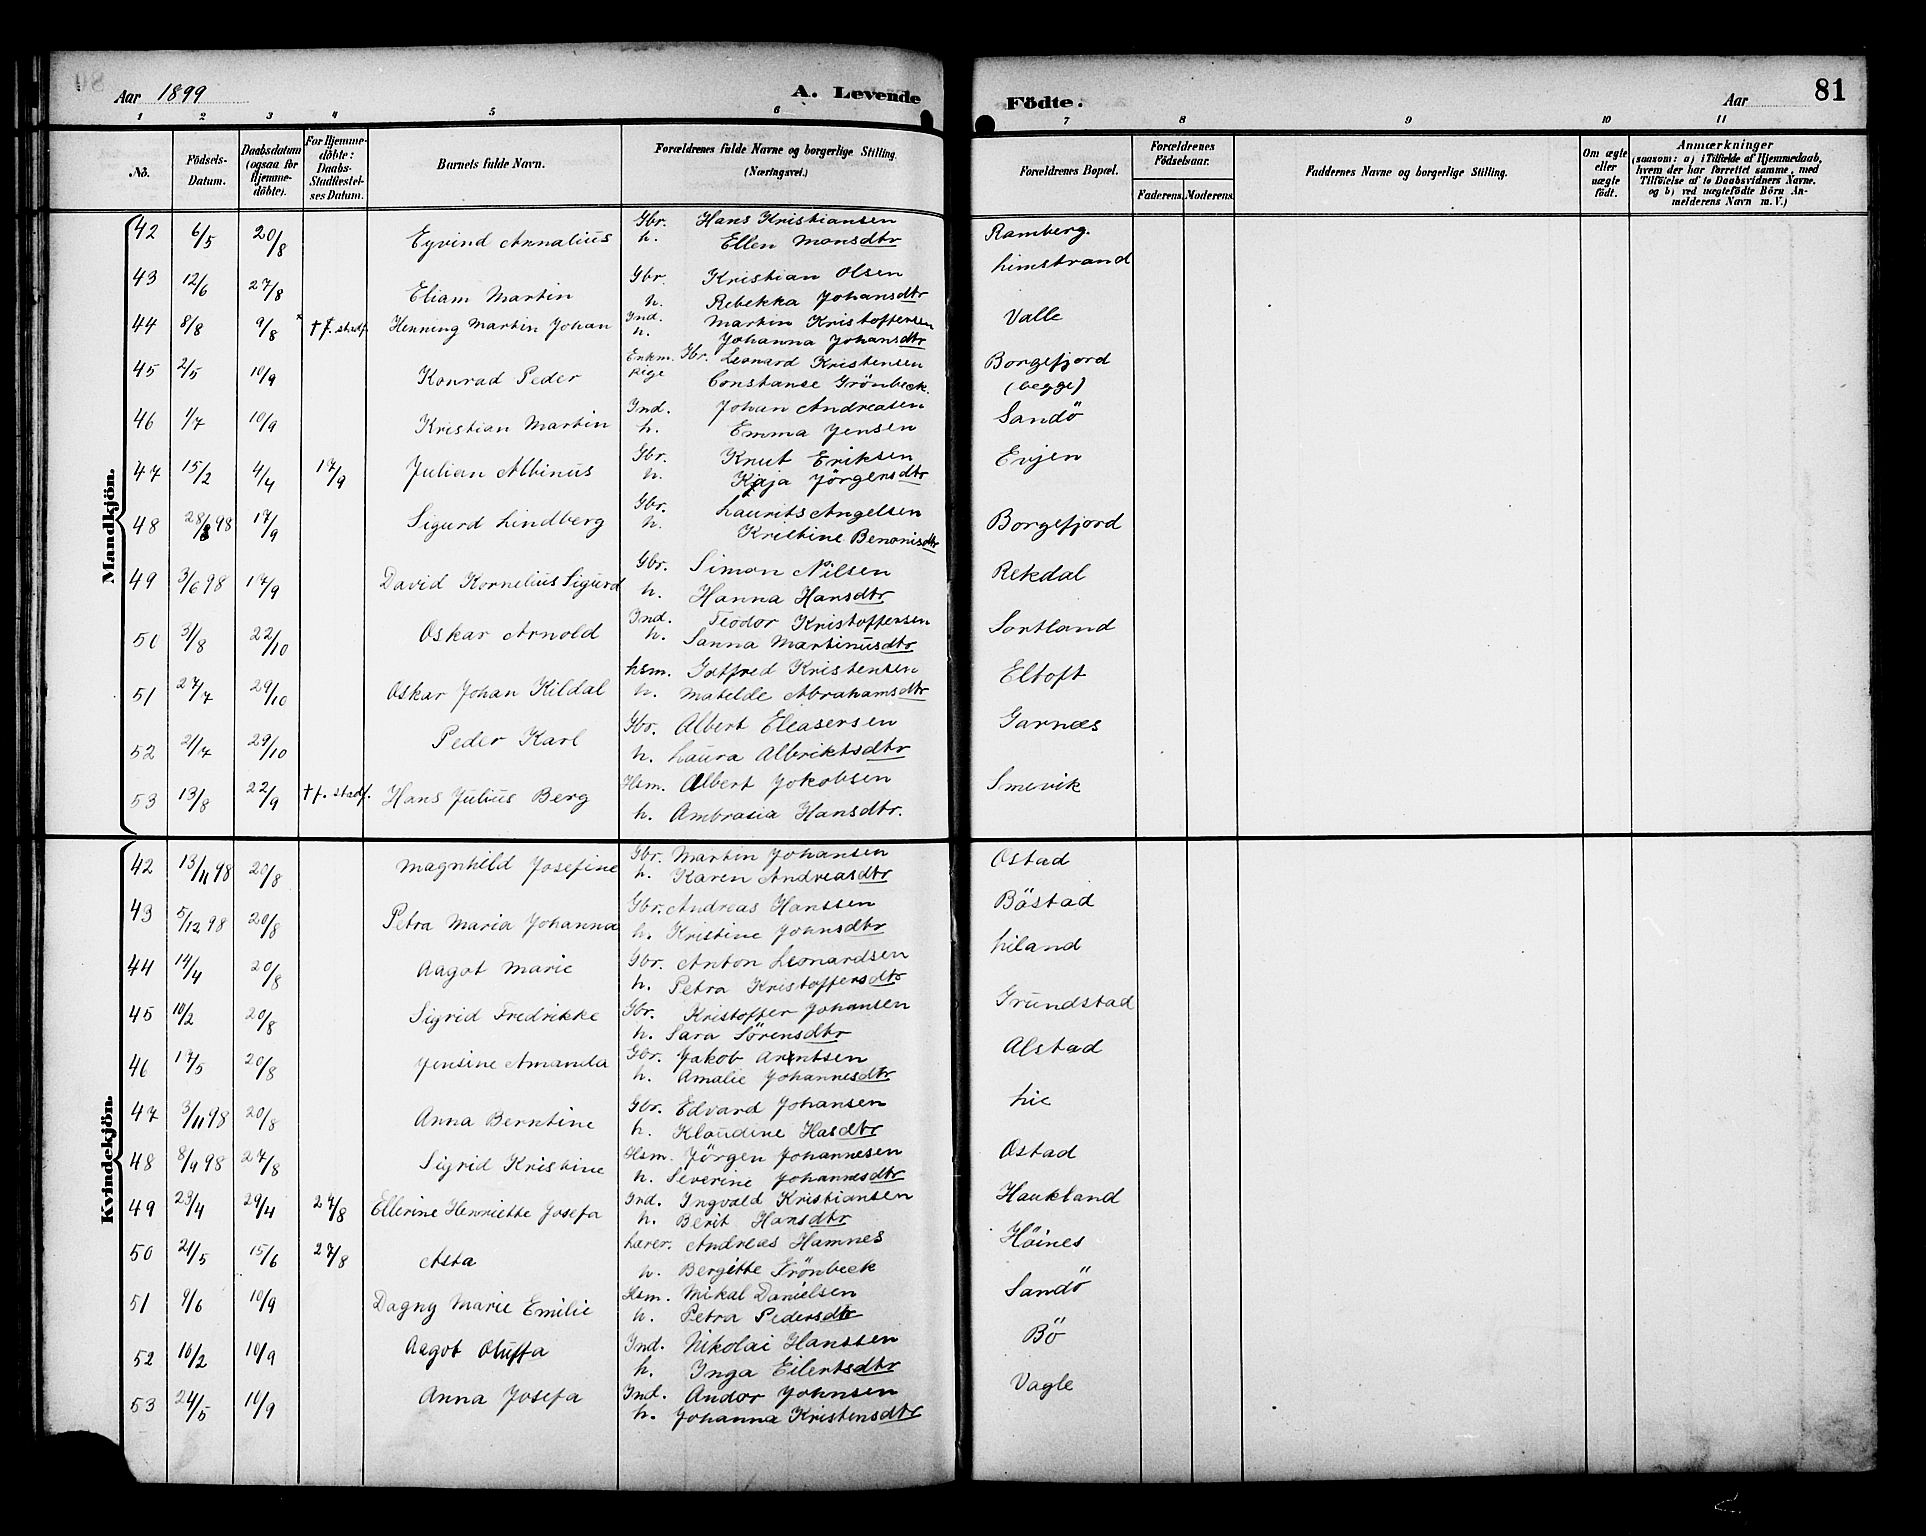 Aar 1899
A. Levende
Födte.
Aar
81
1 2 3 4 5 6 7 8 9 10 11
No.
Födsels-Datum.
Daabsdatum (ogsaa for Hjemme-döbte).
For Hjemme-döbte: Daabs-Stadfæstel-ses Datum.
Barnets fulde Navn.
Forældrenes fulde Navne og borgerlige Stilling.
(Næringsvei.)
Forældrenes Bopæl.
Forældrenes Födselsaar.
Faderens. Moderens.
Faddernes Navne og borgerlige Stilling.
Om ægte eller uægte födt.
Anmærkninger
(saasom: a) i Tilfælde af Hjemmedaab,
hvem der har forrettet samme, med
Tilföielse af to Daabsvidners Navne,
og b) ved uægtefödte Börn An-
melderens Navn m. V.)
Mandkjön.
42 6/5 20/8 Eyvind Annalius Gbr. Hans Kristiansen Ramberg.
h. Ellen Monsdtr
43 12/6 27/8 Eliam Martin Gbr. Kristian Olsen Limstrand
h. Rebekka Johansdtr
44 8/8 9/8 † f. stadf. Henning Martin Johan Ind. Martin Kristoffersen Valle
h. Johanna Johansdtr
45 2/5 10/9 Konrad Peder Enkm. Gbr. Leonard Kristensen Borgefjord
Pige Constanse Grönbeck (begge)
46 1/7 10/9 Kristian Martin Ind. Johan Andreasen Sandö
h. Emma Jensen
47 15/2 4/4 17/9 Julian Albinus Gbr. Knut Eriksen Evjen
h. Kaja Jörgensdtr
48 28/8 98 17/9 Sigurd Lindberg Gbr. Laurits Angelsen Borgefjord
h. Kristine Benonisdtr
49 3/6 98 17/9 David Kornelius Sigurd Gbr. Simon Nilsen Rekdal
h. Hanna Hansdtr
50 3/8 22/10 Oskar Arnold Ind. Teodor Kristoffersen Sortland
h. Sanna Martinusdtr
51 27/7 29/10 Oskar Johan Kildal hsm. Gotfred Kristensen Eltoft
h. Matelde Abrahamsdtr
52 21/7 29/10 Peder Karl Gbr. Albert Eleasersen Garnæs
h. Laura Albriktsdtr
53 13/8 22/9 † f. stadf. Hans Julius Berg Hsm. Albert Jakobsen Smevik
h. Ambrosia Hansdtr.
Kvindekjön.
42 13/11 98 20/8 Magnhild Josefine Gbr. Martin Johansen Ostad
h. Karen Andreasdtr
43 5/12 98 20/8 Petra Maria Johanna Gbr. Andreas Hanssen Böstad
h. Kristine Johnsdtr
44 14/4 20/8 Aagot Marie Gbr. Anton Leonardsen Liland
h. Petra Kristoffersdtr
45 10/2 20/8 Sigrid Fredrikke Gbr. Kristoffer Johansen Grundstad
h. Sara Sörensdtr
46 17/5 20/8 Jensine Amanda Gbr. Jakob Arntsen Alstad
h. Amalie Johannesdtr
47 3/11 98 20/8 Anna Berntine Gbr. Edvard Johansen Lie
h. Klaudine Hasdtr
48 8/9 98 27/8 Sigrid Kristine Hsm. Jörgen Johannesen Ostad
h. Severine Johannesdtr
49 23/4 29/4 27/8 Ellerine Henriette Josefa Ind. Ingvald Kristiansen Haukland
h. Berit Hansdtr
50 21/5 15/6 27/8 Asta Lærer. Andreas Hamnes Höines
h. Bergitte Grönbeck
51 9/6 10/9 Dagny Marie Emilie Hsm. Mikal Danielsen Sandö
h. Petra Pedersdtr
52 10/2 10/9 Aagot Oluffa Ind. Nikolai Hanssen Bö
h. Inga Eilertsdtr
53 24/5 10/9 Anna Josefa Ind. Andor Johnsen Vagle
h. Johanna Kristensdtr